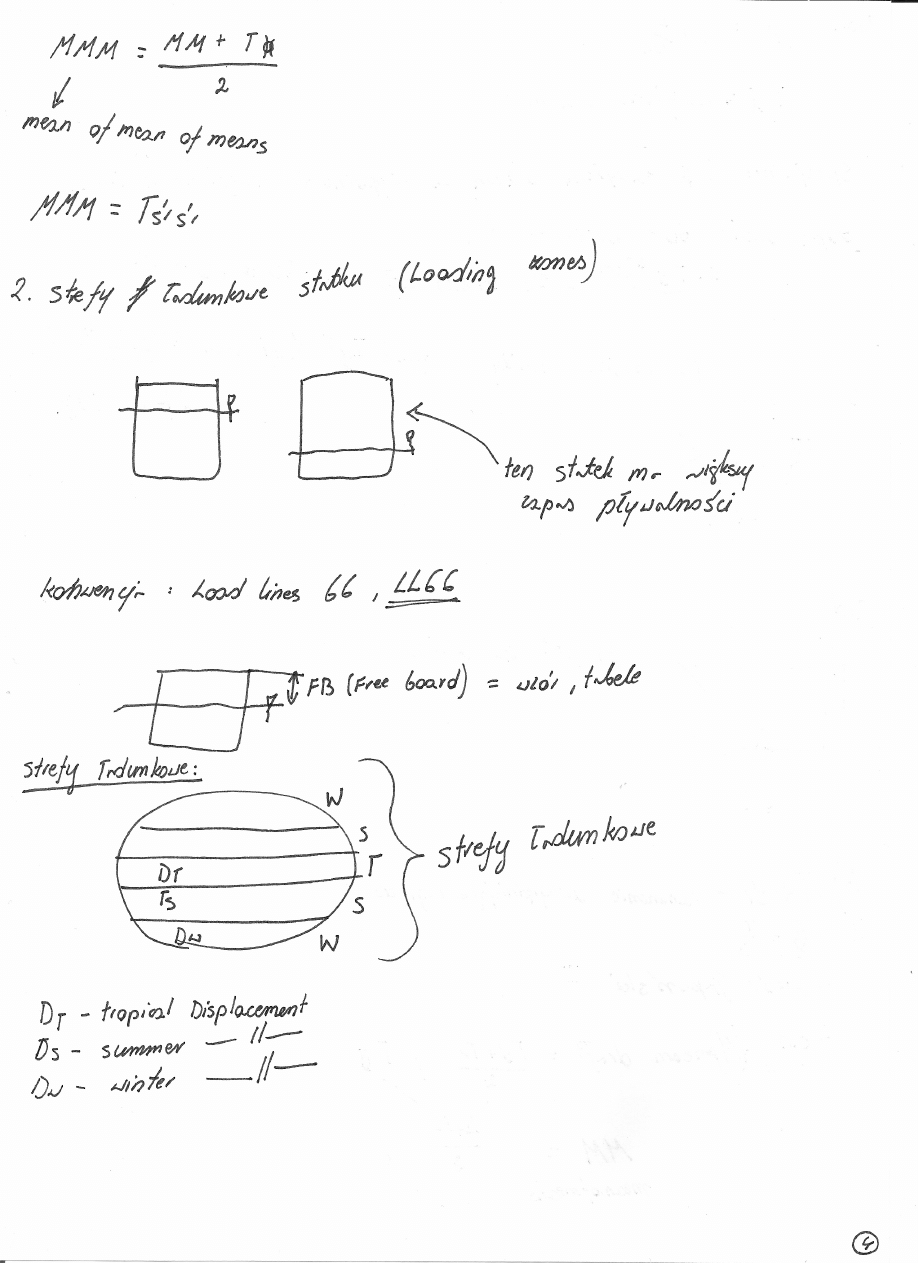 MMM = MM + T⊗
2
mean of mean of means
MMM = Tś, ś,
2. Strefy Ładunkowe statku (Loading zones)
ten statek ma większy
zapas pływalności
konwencja : Load lines 66, LL66
FB (Free board) = wzór, tabele
Strefy Ładunkowe:
W
S
DT T
Ts S
Dw W
Strefy Ładunkowe
DT - tropical Displacement
Ds - summer —//—
Dw - winter —//—
4